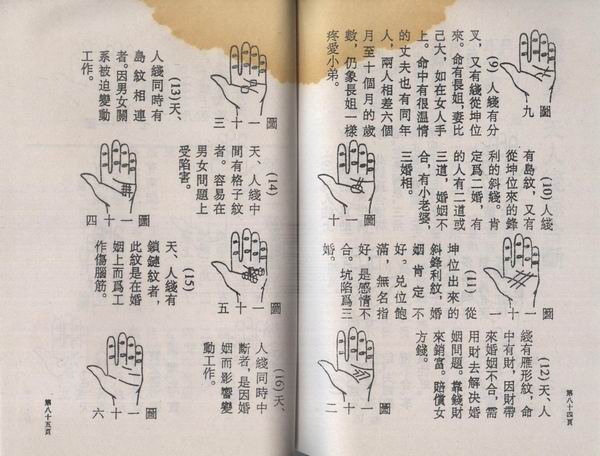 圖九
(9) 人綫有分
叉,又有綫從坤位
來。命有長姐,妻比
己大,如在女人手
上。命中有很溫情
的丈夫也有同年
人,兩人相差六個
月至十個月的歲
數,仍象長姐一樣
疼愛小弟。
(10) 人綫
有島紋,又有
從坤位來的鋒
利的斜綫。肯
定爲二婚,有
的人有二道或
三道,婚姻不
合,有小老婆,
三婚相。
圖一十
圖一十一
(11) 從
坤位出來的
斜鋒利紋,婚
姻肯定不
好。兌位飽
滿,無名指
好,是感情不
合。坑陷爲三
婚。
(12) 天、人
綫有雁形紋,命
中有財,因財帶
來婚姻不合,需
用財去解決婚
姻問題。靠錢財
來銷富。賠償女
方錢。
圖一十二
第八十四頁
圖一十三
(13) 天、
人綫同時有
島紋相連
者。因男女關
系被迫變動
工作。
(14)
天、人綫中
間有格子紋
者。容易在
男女問題上
受陷害。
圖一十四
圖一十五
(15)
天、人綫有
鎖鏈紋者,
此紋是在婚
姻上而爲工
作傷腦筋。
(16) 天、
人綫同時中
斷者,是因婚
姻而影響變
動工作。
圖一十六
第八十五頁